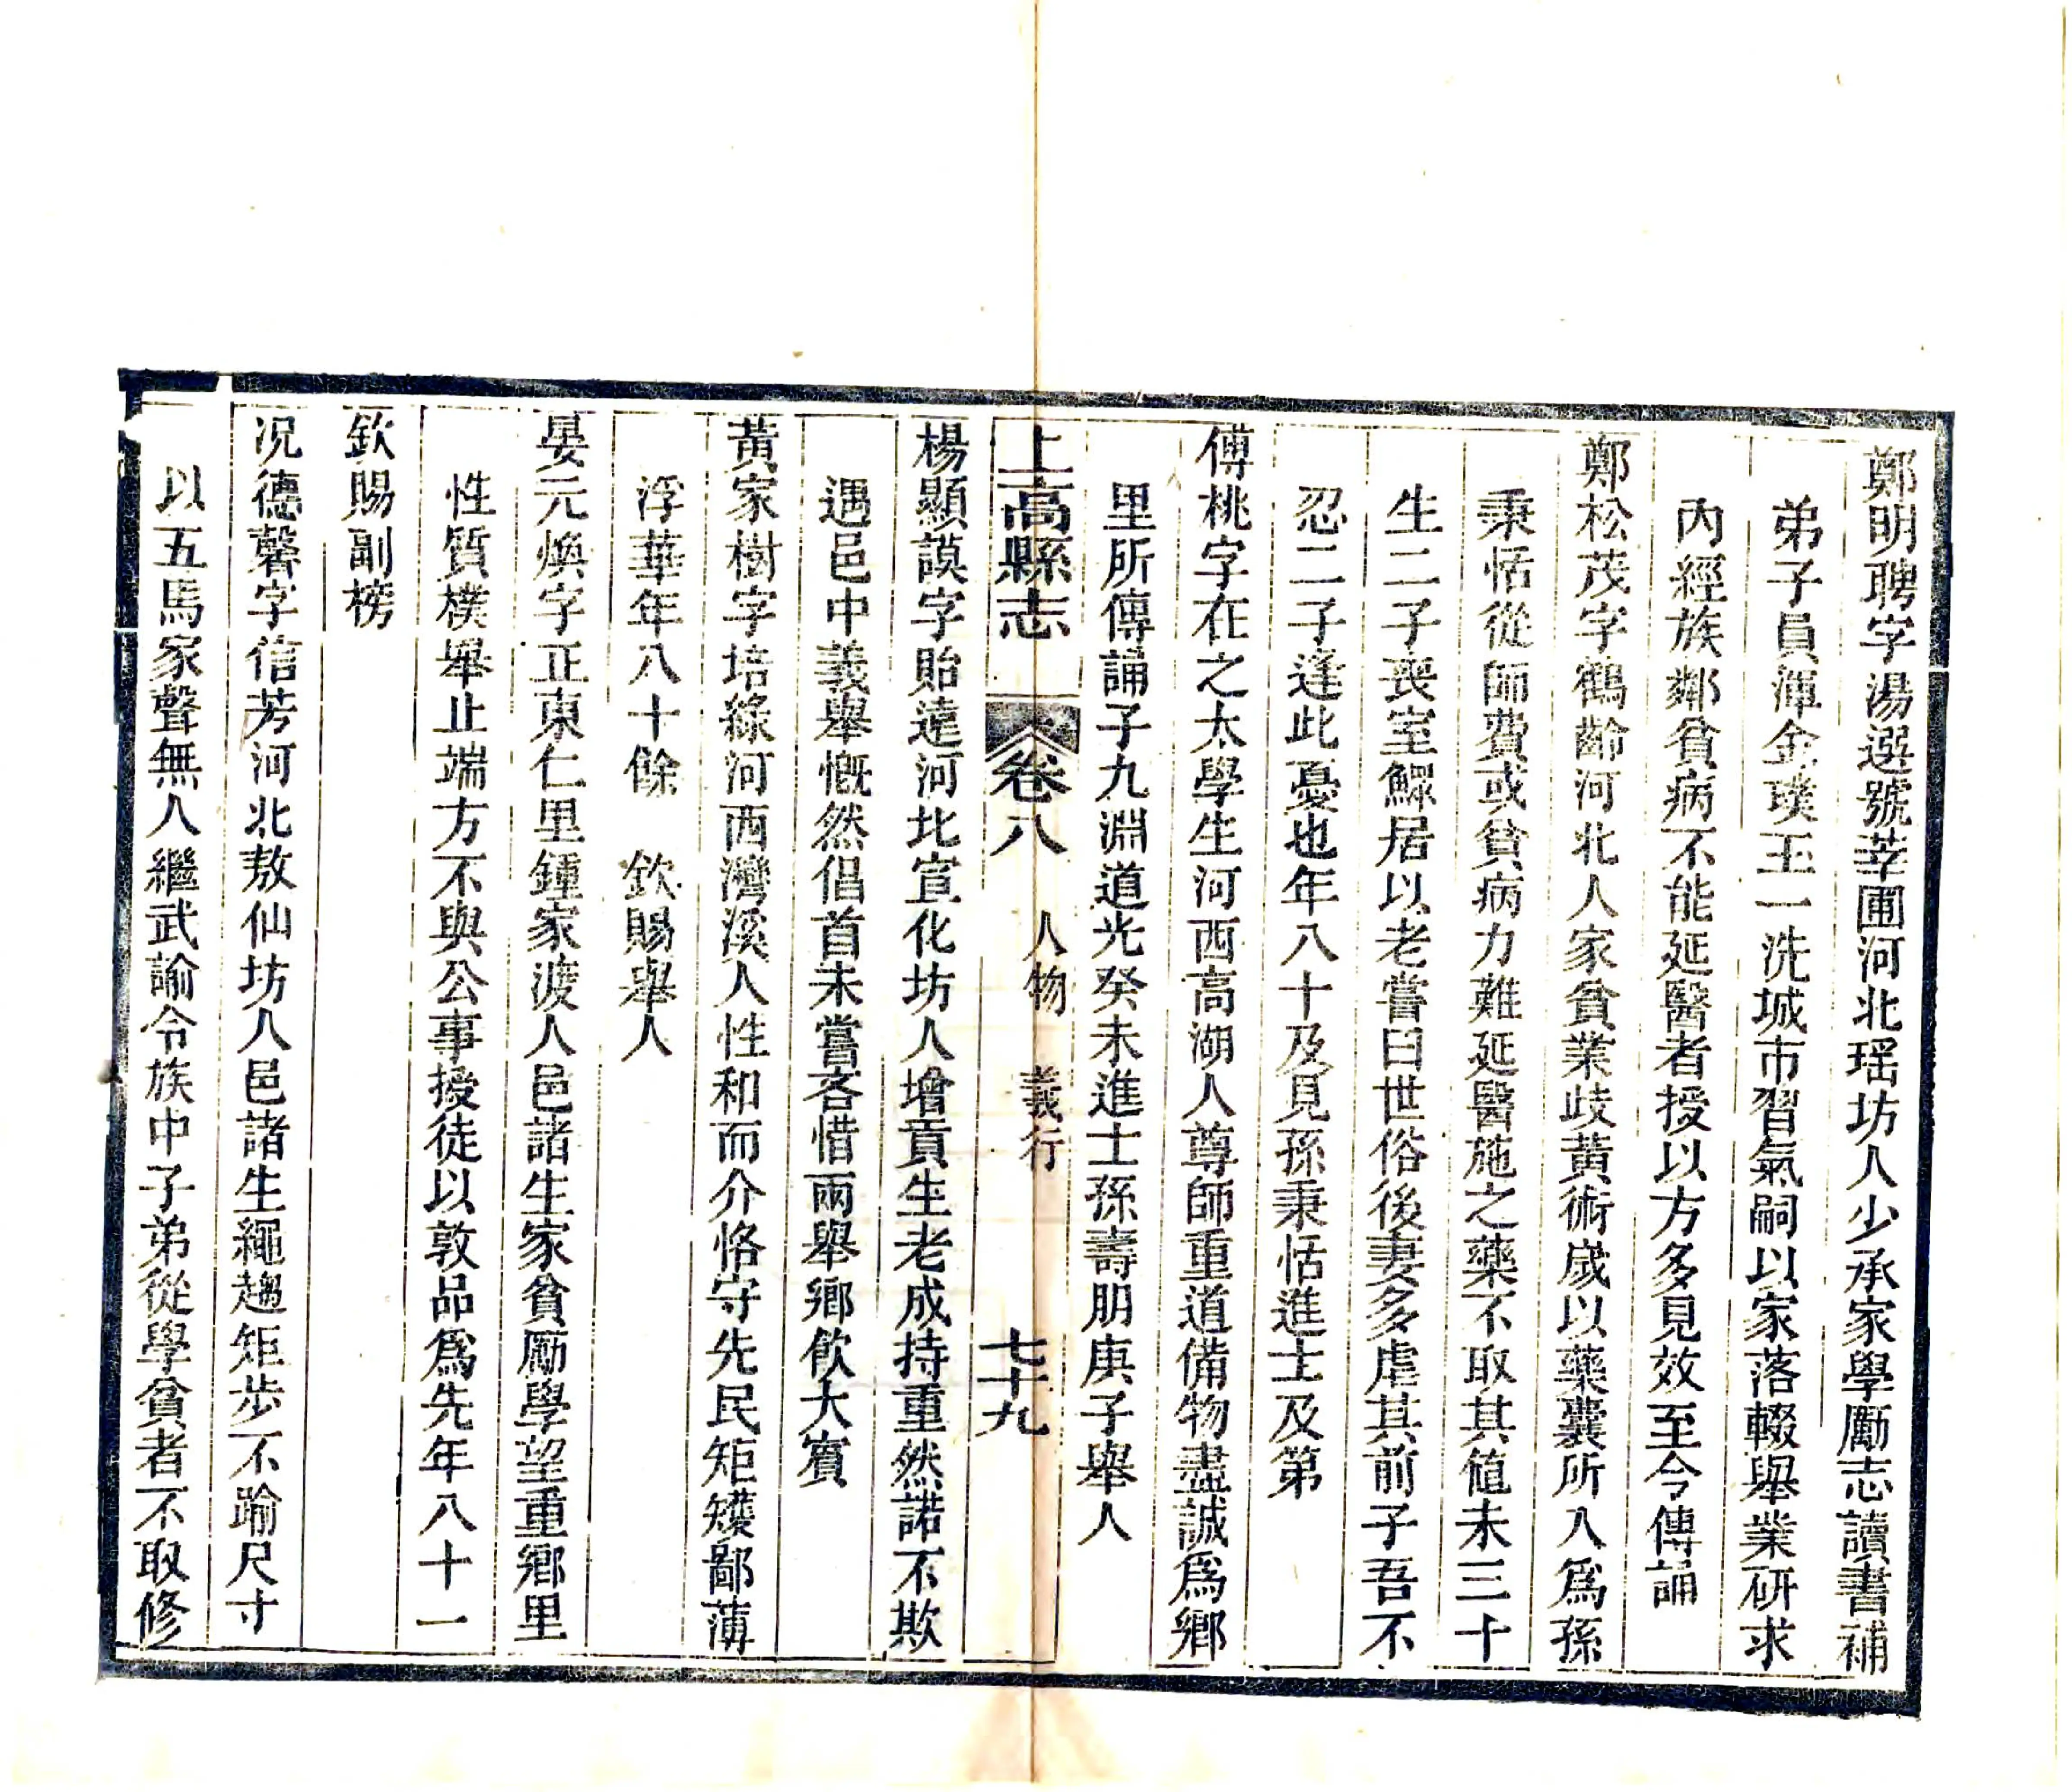 鄭明聘字湯選號莘圃河北瑶坊人少承家學勵志讀書補
弟子員渾金璞玉一洗城市習氣嗣以家落輟舉業研求
內經族鄰貧病不能延醫者授以方多見效至今傳誦
鄭松茂字鶴齡河北人家貧業歧黃術歲以藥囊所入爲孫
秉恬從師費或貧病力難延醫施之藥不取其値未三十
生二子喪室鰥居以老嘗曰世俗後妻多虐其前子吾不
忍二子逢此憂也年八十及見孫秉恬進士及第
傅桃字在之太學生河西高湖人尊師重道備物盡誠爲鄉
里所傳誦子九淵道光癸未進士孫壽朋庚子舉人
上高縣志 卷八 人物 義行 七十九
楊顯謨字貽遠河北宣化坊人增貢生老成持重然諾不欺
遇邑中義舉慨然倡首未嘗吝惜兩舉鄉飲大賓
黃家樹字培綠河西灣溪人性和而介恪守先民矩矱鄙薄
浮華年八十餘 欽賜舉人
晏元煥字正東仁里鍾家渡人邑諸生家貧勵學望重鄉里
性質樸舉止端方不與公事授徒以敦品爲先年八十一
欽賜副榜
况德馨字信芳河北敖仙坊人邑諸生繩趨矩步不踰尺寸
以五馬家聲無人繼武諭令族中子弟從學貧者不取修